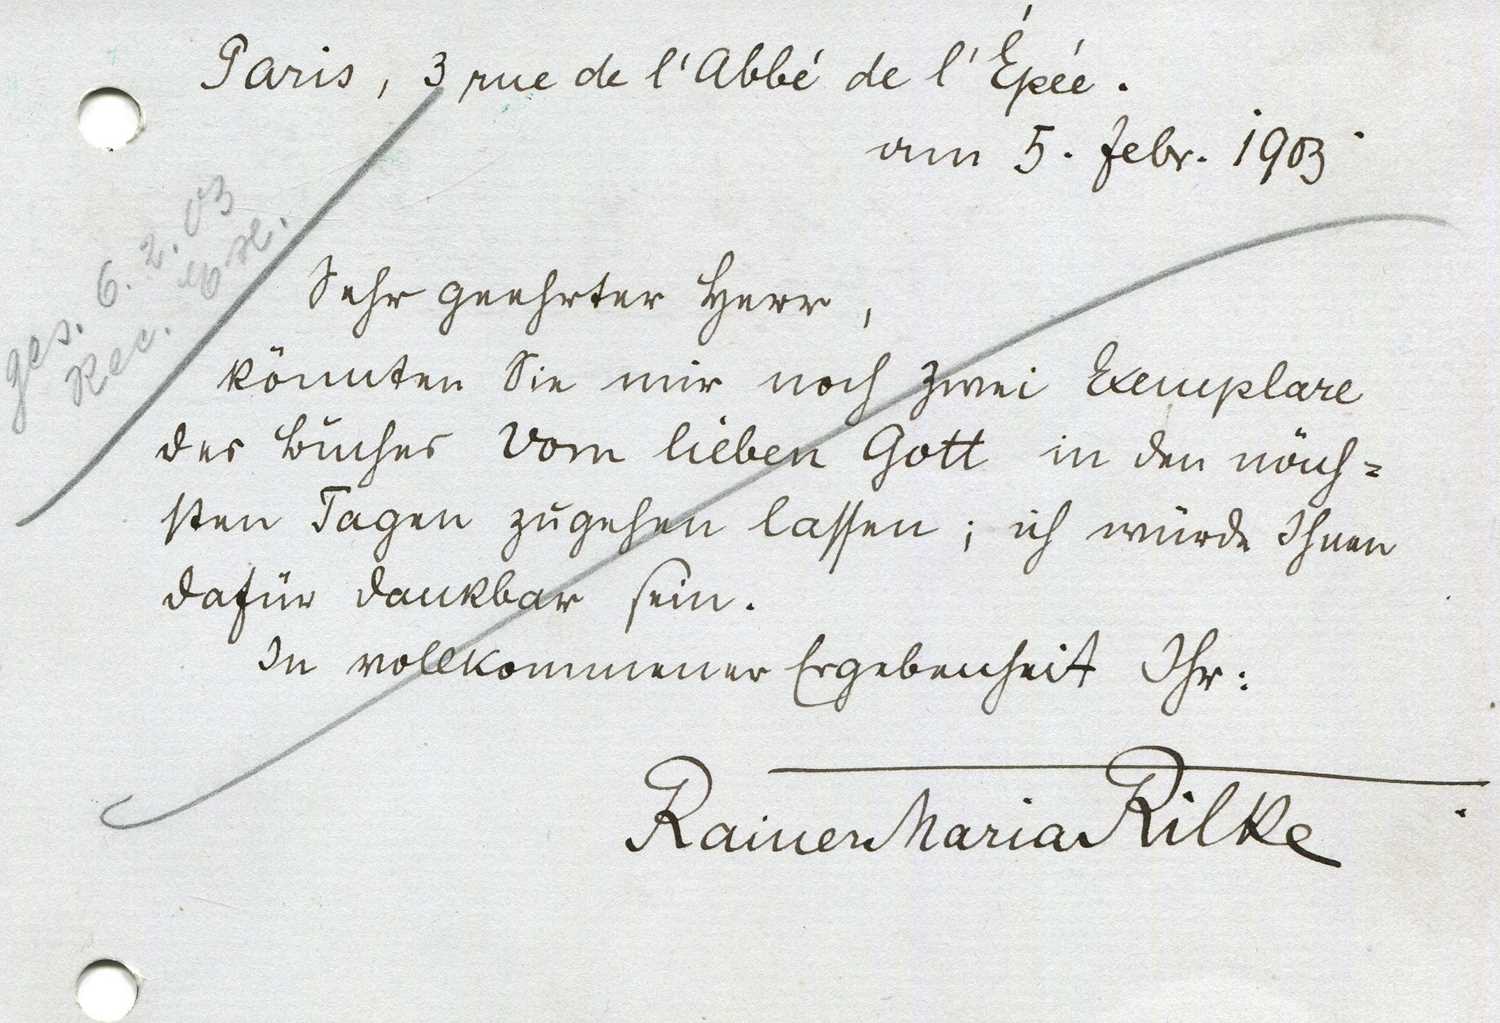 Paris, 3 rue de l'Abbé de l'Épée.
am 5. Febr. 1903
ges. 6.2.03
Rec.
Sehr geehrter Herr,
könnten Sie mir noch zwei Exemplare
des Buches Vom lieben Gott in den näch=
sten Tagen zugehen lassen; ich würde Ihnen
dafür dankbar sein.
In vollkommener Ergebenheit Ihr:
Rainer Maria Rilke